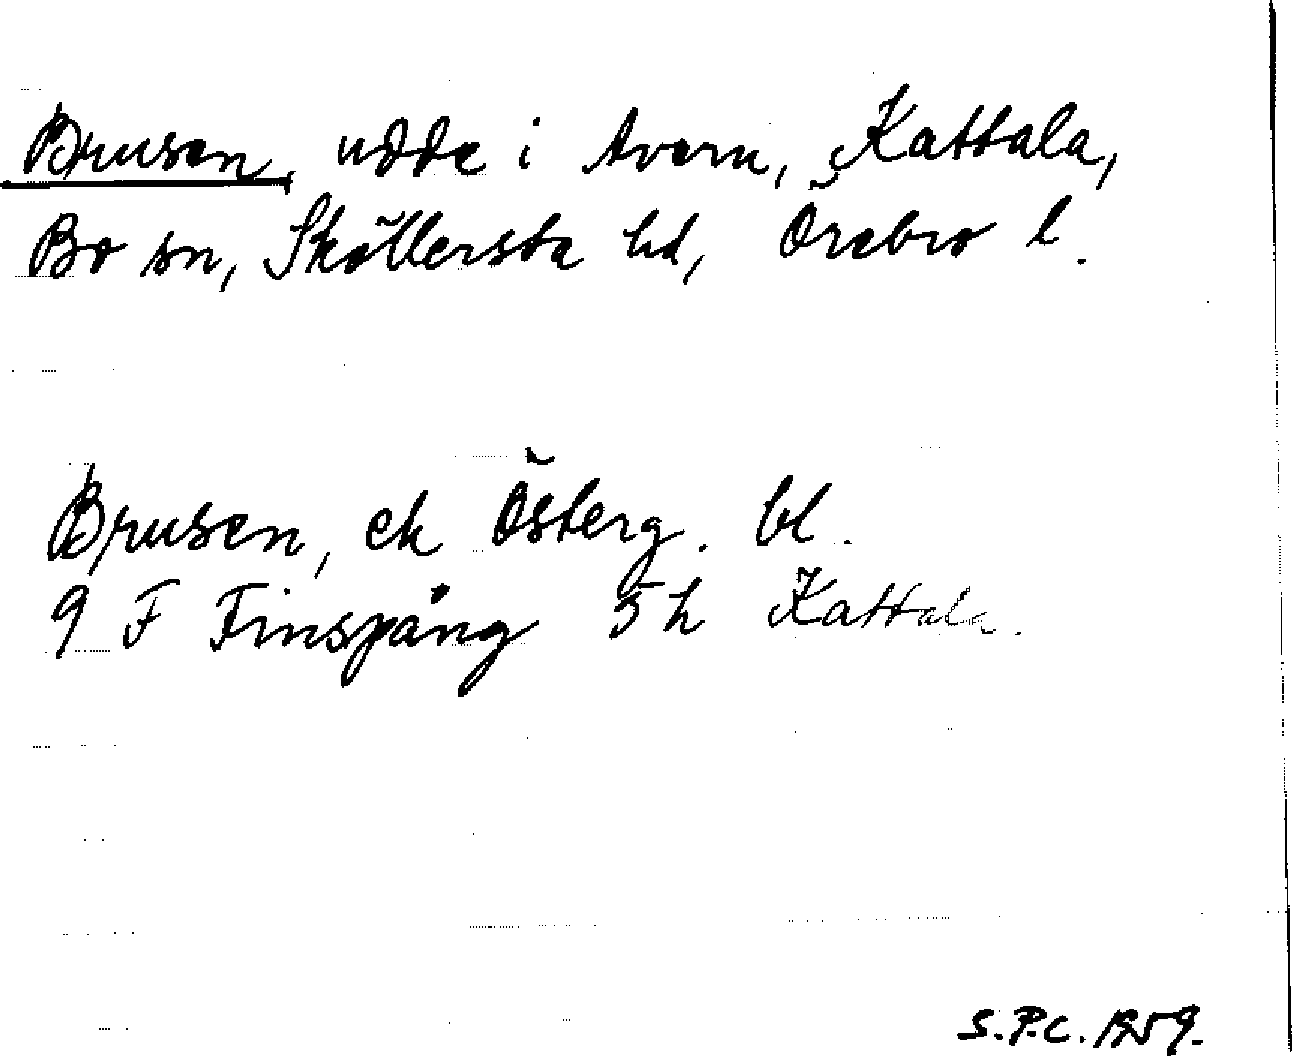 Brusen, udde i Avern, Kattala,
Bo sn, Sköllersta hd, Örebro l.
Brusen, ek Österg. bl.
9 F Finspång 5 h Kattala.
S.P.C. 1959.